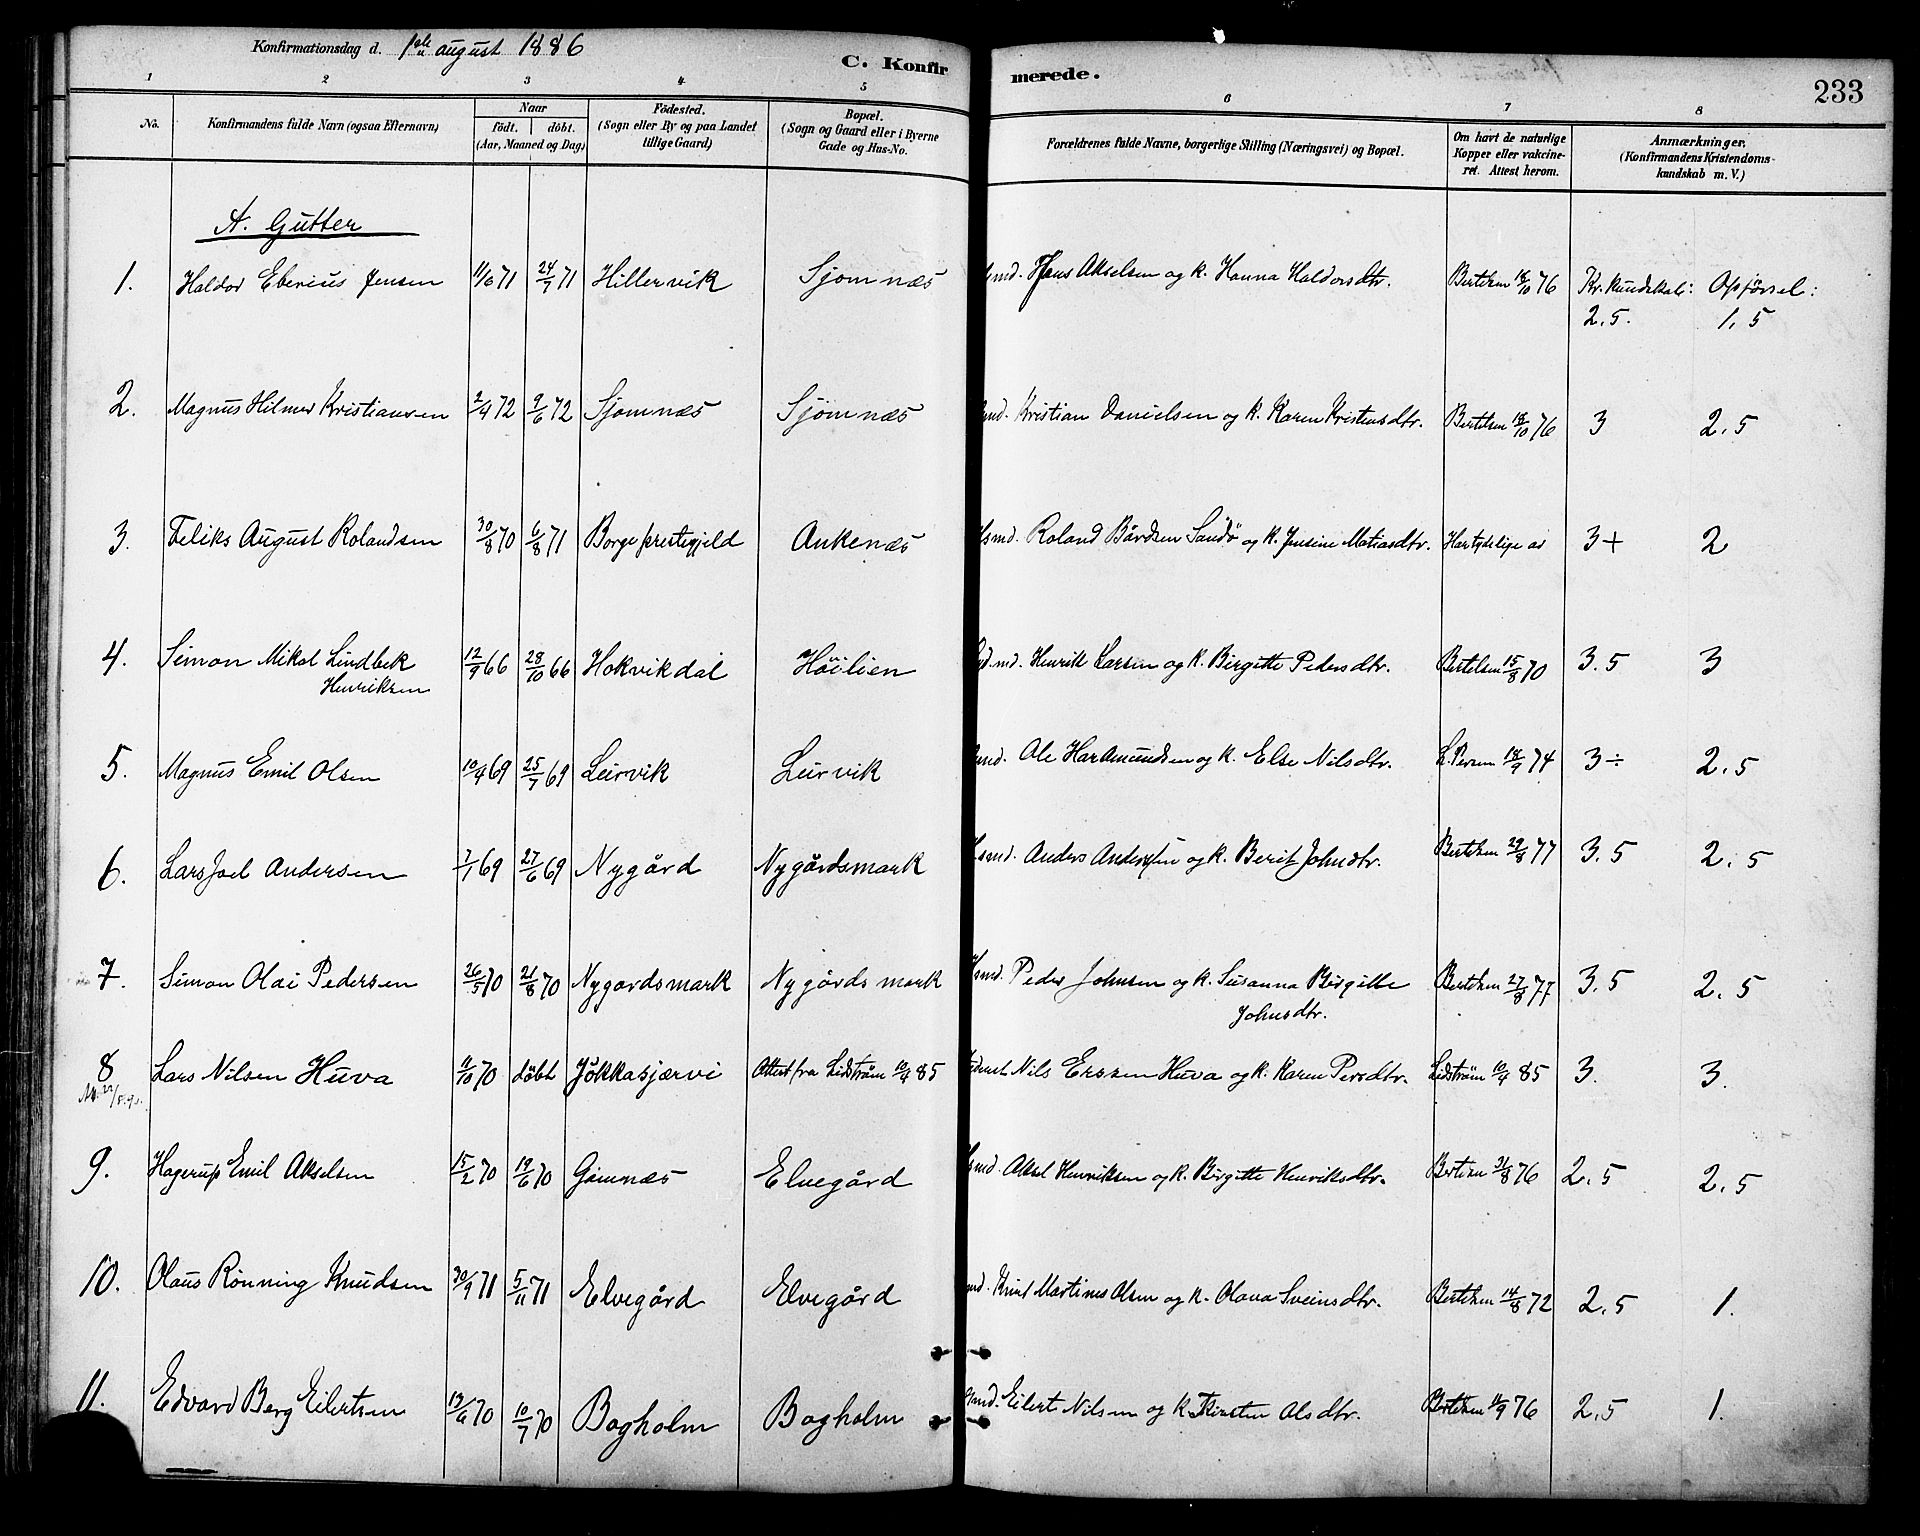 Konfirmationsdag d. 1ste august 1886
C. Konfirmerede.
233
1 2 3 4 5 6 7 8
No. Konfirmandens fulde Navn (ogsaa Efternavn) Naar födt. döbt. (Aar, Maaned og Dag) Födested. (Sogn eller By og paa Landet tillige Gaard) Bopæl. (Sogn og Gaard eller i Byerne Gade og Hus-No. Forældrenes fulde Navne, borgerlige Stilling (Næringsvei) og Bopæl. Om havt de naturlige Kopper eller vakcineret. Attest herom. Anmærkninger. (Konfirmandens Kristendomskundskab m. V.)
A. Gutter
1. Haldor Eberius Jensen 11/6 71 24/7 71 Hillervik Sjomnæs Jens Akselsen og k. Hanna Haldorsdtr. Bertelsen 18/10 76 Kr. kundskab: 2.5. Opförsel: 1,5
2. Magnus Hilmer Kristiansen 2/4 72 9/6 72 Sjomnæs Sjomnæs Kristian Danielsen og k. Karen Kristensdtr. Bertelsen 18/10 76 3 2.5
3. Feliks August Rolandsen 30/8 70 6/8 71 Borge prestegjeld Ankenæs Roland Bårdsen Sandö og k. Jensine Matiasdtr. Har tydelige ar 3+ 2
4. Simon Mikal Lindbek Henriksen 12/9 66 28/10 66 Hokvikdal Höilien Henrik Larsen og k. Birgitte Pedersdtr. Bertelsen 15/8 70 3.5 3
5. Magnus Emil Olsen 10/4 69 25/7 69 Leirvik Leirvik Ole Haramundsen og k. Else Nilsdtr. L. Persen 18/9 74 3÷ 2.5
6. Lars Joel Andersen 7/1 69 27/6 69 Nygård Nygårdsmark Anders Andersen og k. Berit Johnsdtr. Bertelsen 29/8 77 3.5 2.5
7. Simon Olai Pedersen 26/5 70 21/8 70 Nygårdsmark Nygårdsmark Peder Johnsen og k. Susanna Birgitte Johnsdtr. Bertelsen 27/8 77 3.5 2.5
8 Lars Nilsen Huva 11/10 70 döbt Jökkasjærvi Attest fra Lidström 10/4 85 Nils Erssen Huva og k. Karen Persdtr. Lidström 10/4 85 3. 3.
9. Hagerup Emil Akselsen 15/2 70 19/6 70 Gjomnæs Elvegård Aksel Henriksen og k. Birgitte Henriksdtr. Bertelsen 31/8 76 2.5 2.5
10. Olaus Rönning Knudsen 30/9 71 5/11 71 Elvegård Elvegård Knut Martines Olsen og k. Olava Sveinsdtr. Bertelsen 14/8 72 2,5 1.
11. Edvard Berg Eilertsen 19/6 70 10/7 70 Bogholm Bogholm Eilert Nilsen og k. Kirsten Olsdtr. Bertelsen 11/9 76 2.5 1.